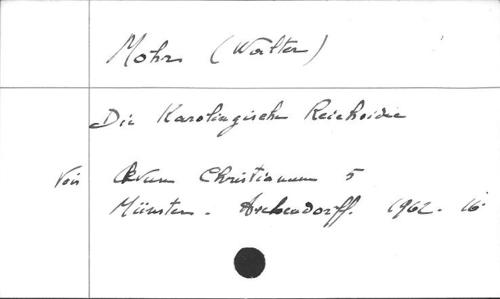 Mohr (Walter)
Die Karolingische Reichsidee
Voir Aevum Christianum 5
Münster. Aschendorff. 1962. 16°